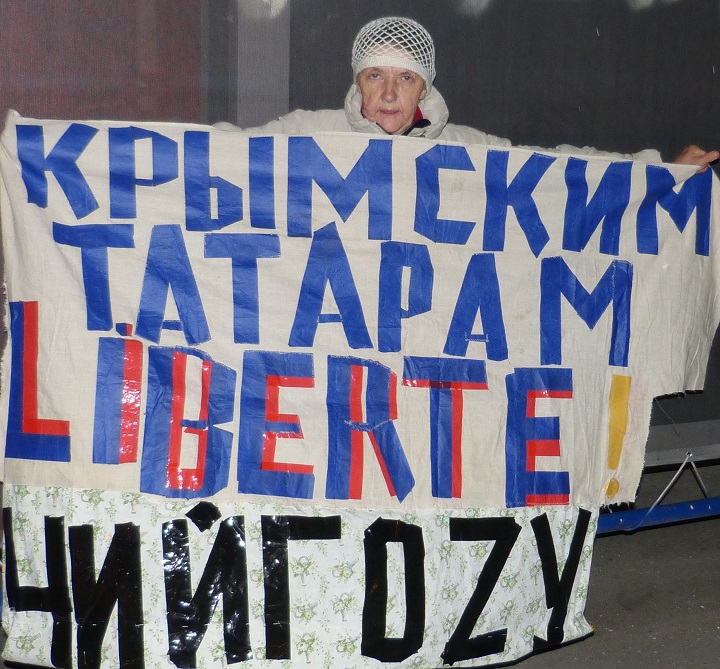 КРЫМСКИМ
ТАТАРАМ
LiBERTE!
ЧИЙГОZУ